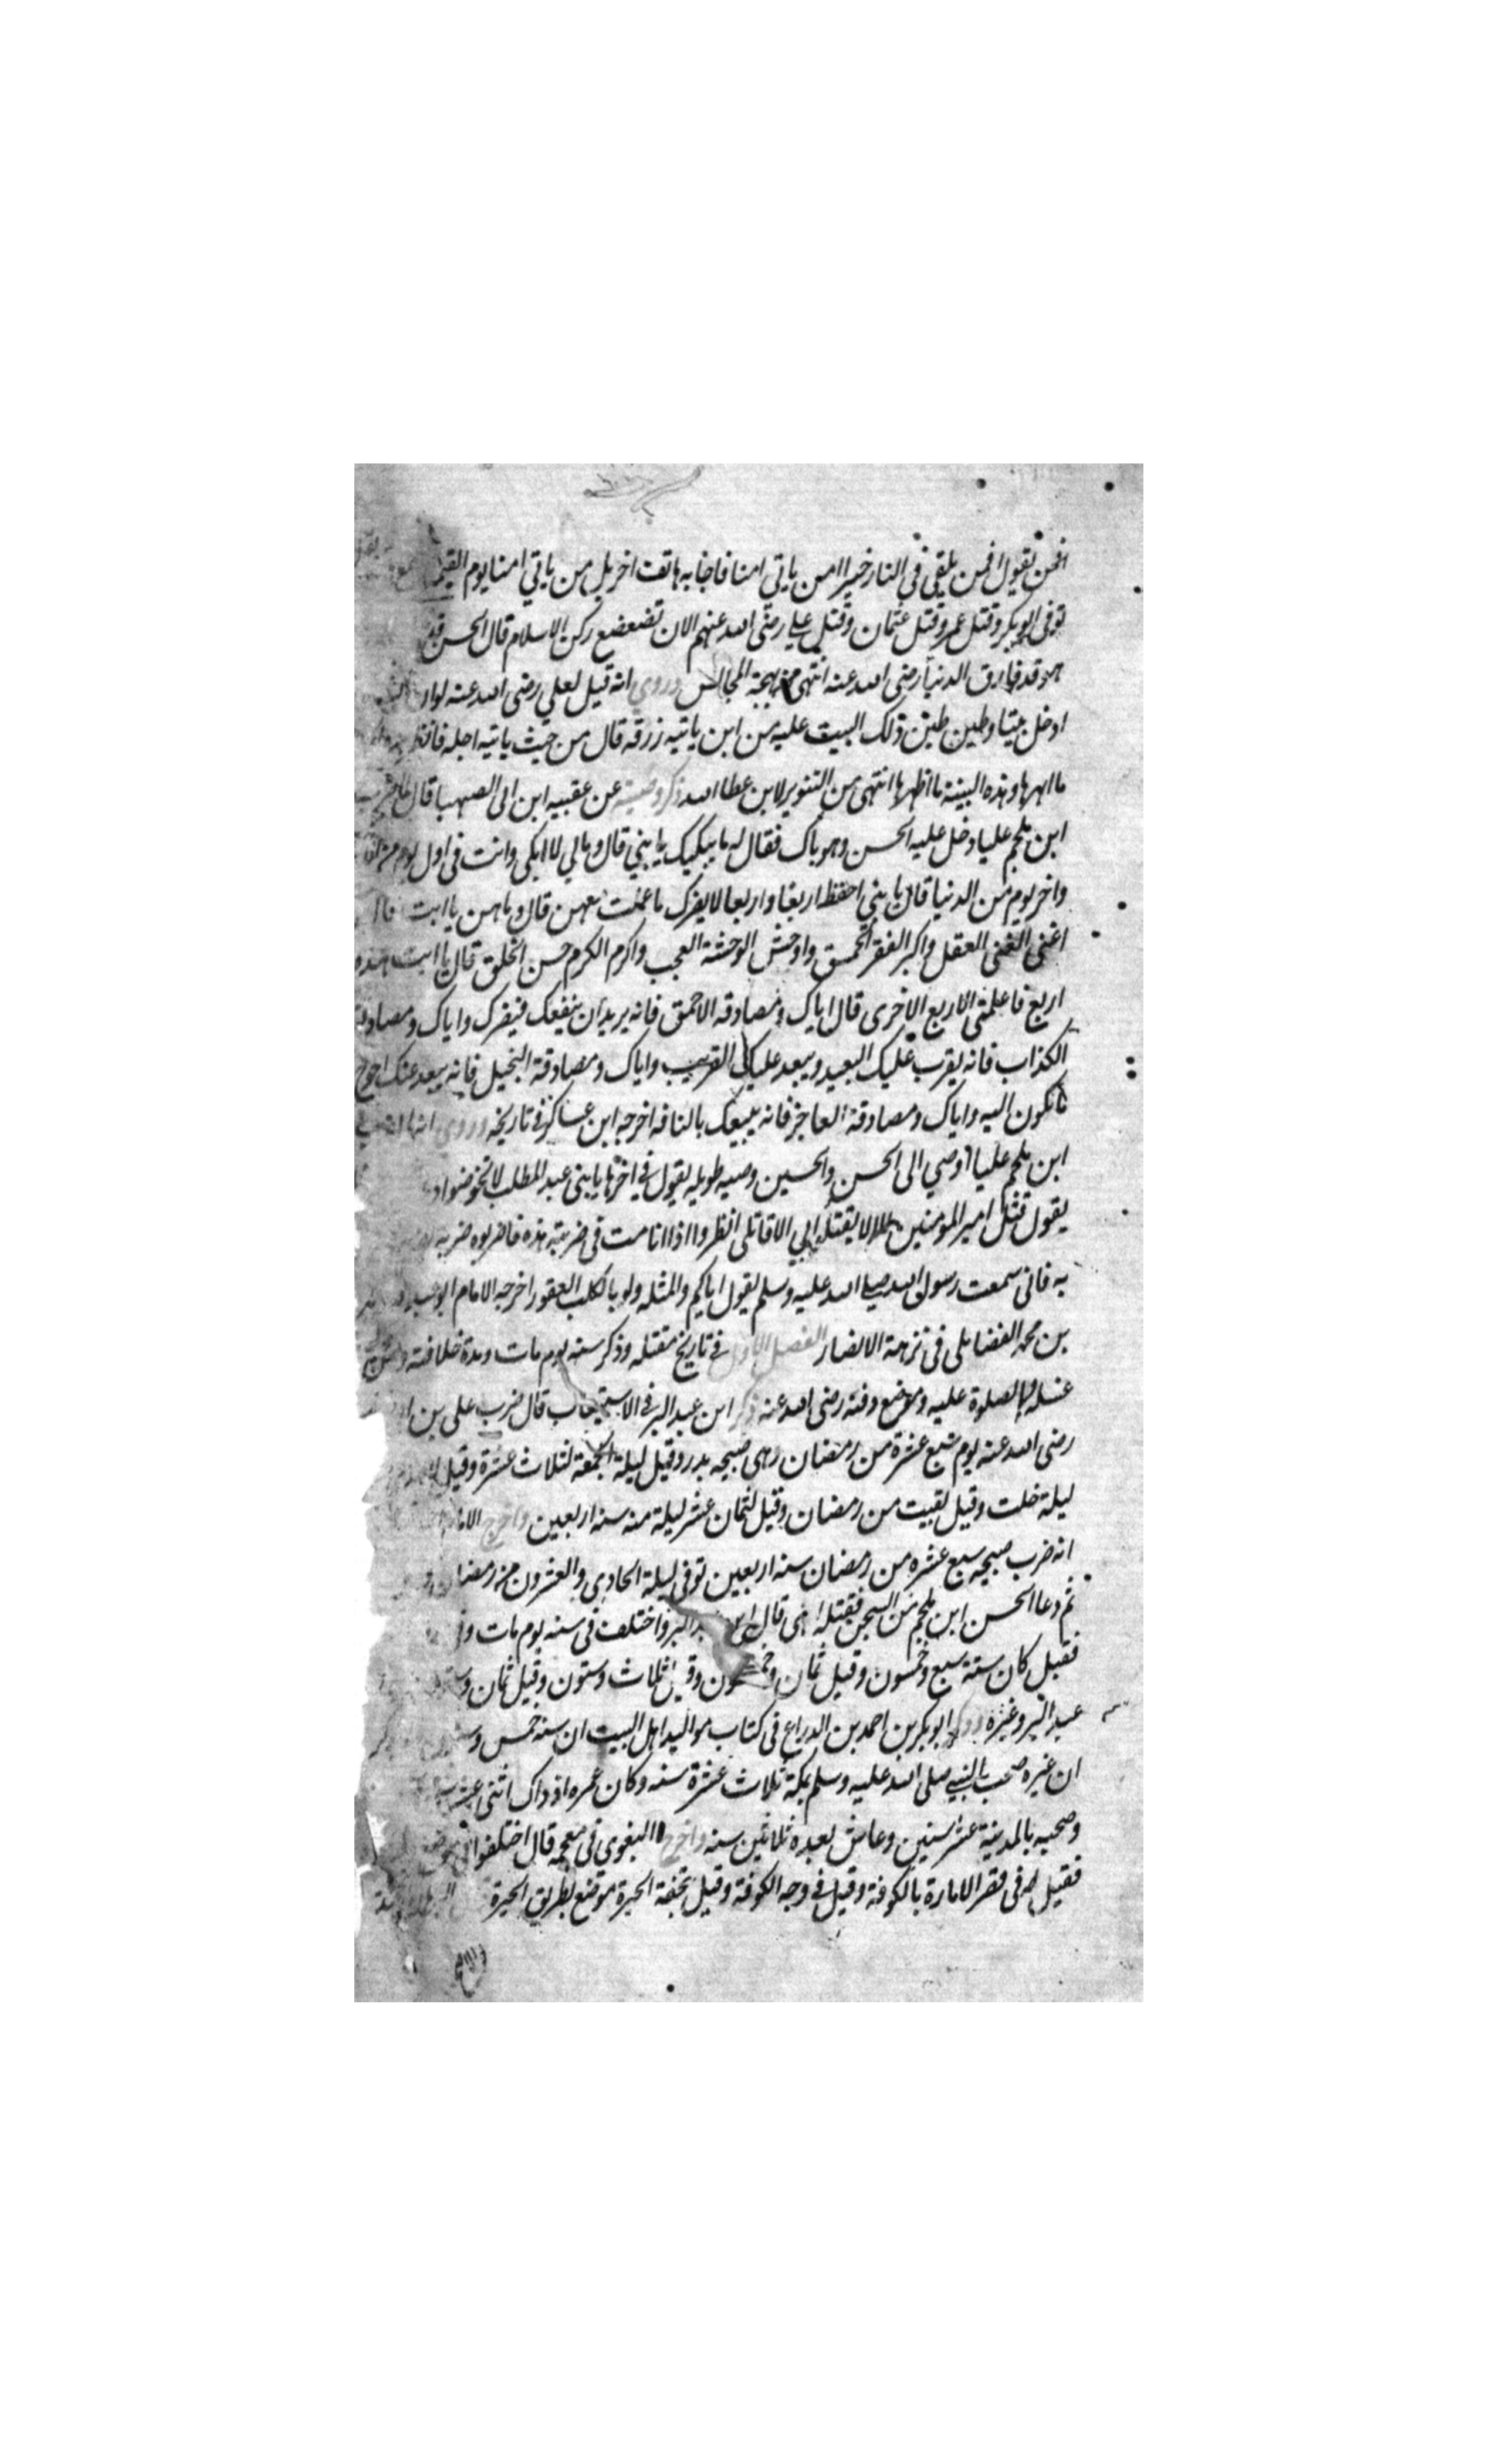 افمن يقول افمن يلقى فى النار خير ام من ياتى امنا فاجابه هاتف اخر بل من ياتي امنا يوم القيمة
توفى ابو بكر وقتل عمر وقتل عثمان وقتل علي رضى الله عنهم الان تضعضع ركن الاسلام قال الحسن
هو قد فارق الدنيا رضى الله عنه انتهى من بهجة المجالس وروي انه قيل لعلي رضى الله عنه لو ان
ادخل بيتا وطين طين ذلك البيت عليه من اين ياتيه رزقه قال من حيث ياتيه اجله فانظر
ما ابهرها وهذه البينة ما اظهرها انتهى من التنوير لابن عطا الله ذكر وصيته عن عقبيه ابن ابى الصهبا قال لما ضرب
ابن ملجم عليا دخل عليه الحسن وهو باك فقال له ما يبكيك يا بني قال ومالي لا ابكى وانت فى اول يوم من
واخر يوم من الدنيا قال يا بني احفظ اربعا واربعا لا يضرك ما عملت معهن قال وما هن يا ابت قال
اغنى الغنى العقل واكبر الفقر الحمق واوحش الوحشة العجب واكرم الكرم حسن الخلق قال يا ابت هذه
اربع فاعلمنى الاربع الاخرى قال اياك ومصادقه الاحمق فانه يريد ان ينفعك فيضرك واياك ومصادقة
الكذاب فانه يقرب عليك البعيد ويبعد عليك القريب واياك ومصادقة البخيل فانه يبعد عنك احوج
ما تكون اليه واياك ومصادقة الفاجر فانه يبيعك بالتافه اخرجه ابن عساكر فى تاريخه وروى انه لما ضرب
ابن ملجم عليا اوصي الى الحسن والحسين وصيه طويله يقول في اخرها يا بنى عبد المطلب لا تخوضوا
يقول قتل امير المومنين الا لا يقتل بي الا قاتلى انظروا اذا انا مت فى ضربته هذه فاضربوه ضربه
به فانى سمعت رسول الله صلى الله عليه وسلم يقول اياكم والمثله ولو بالكلب العقور اخرجه الامام ابو
بن محمد الفضايلى فى نزهة الابصار الفصل الاول فى تاريخ مقتله وذكر سنه يوم مات ومدة خلافته
غسله والصلوة عليه وموضع دفنه رضى الله عنه ذكر ابن عبد البر فى الاستيعاب قال ضرب على بن
رضى الله عنه يوم سبع عشرة من رمضان وهى صبيحه بدر وقيل ليلة الجمعة لثلاث عشرة وقيل
ليلة خلت وقيل بقيت من رمضان وقيل لثمان عشر ليلة منه سنه اربعين واخرج
انه ضرب صبيحه سبع عشره من رمضان سنه اربعين توفى ليلة الحادى والعشرون من رمضان
ثم دعا الحسن ابن ملجم من السجن فقتله انتهى قال ابن عبد البر واختلف فى سنه يوم مات
فقيل كان سنة سبع وخمسون وقيل ثمان وخمسون وقيل ثلاث وستون وقيل ثمان
عبد البر وغيره وذكر ابو بكر بن احمد بن الدراع فى كتاب مواليد اهل البيت ان سنه خمس
ان غيره صحب النبي صلى الله عليه وسلم بمكة ثلاث عشرة سنه وكان عمره اذ ذاك اثنى عشر
وصحبه بالمدينة عشر سنين وعاش بعده ثلاثين سنه واخرج البغوى فى معجمه قال اختلفوا فى
فقيل له فى قصر الامارة بالكوفة وقيل فى وجه الكوفة وقيل بنجفة الحيرة موضع بطريق الحيرة